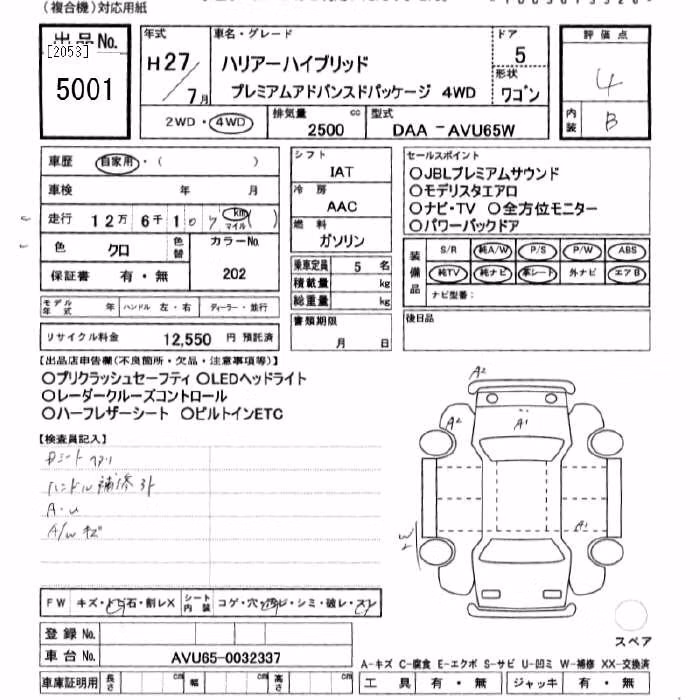 (複合機)対応用紙
出品No. [2053] 5001
年式 H27/7月
車名・グレード ハリアーハイブリッド
プレミアムアドバンスドパッケージ 4WD
ドア 5
形状 ワゴン
評価点 4
内装 B
2WD・4WD 排気量 2500 cc 型式 DAA -AVU65W
車歴 自家用・( )
車検 年 月
走行 12万 6千 107 km マイル ( )
色 クロ 色替 カラーNo. 202
保証書 有・無
モデル年式 年 ハンドル 左・右 ディーラー・並行
リサイクル料金 12,550 円 預託済
シフト IAT
冷房 AAC
燃料 ガソリン
乗車定員 5 名
積載量 kg
総重量 kg
書類期限 月 日
セールスポイント
○JBLプレミアムサウンド
○モデリスタエアロ
○ナビ・TV ○全方位モニター
○パワーバックドア
装備品 S/R 純A/W P/S P/W ABS
純TV 純ナビ 革シート 外ナビ エアB
ナビ型番:
後日品
【出品店申告欄(不良箇所・欠品・注意事項等)】
○プリクラッシュセーフティ ○LEDヘッドライト
○レーダークルーズコントロール
○ハーフレザーシート ○ビルトインETC
【検査員記入】
ハンドル補修
A・U
A/W キズ
A2
A2
A1
A1
W2
FW キズ・とび石・割レX シート内装 コゲ・穴・汚レ・シミ・破レ・スレ
登録No.
車台No. AVU65-0032337
車庫証明用 長さ cm 幅 cm 高さ cm
スペア
A-キズ C-腐食 E-エクボ S-サビ U-凹ミ W-補修 XX-交換済
工具 有・無 ジャッキ 有・無